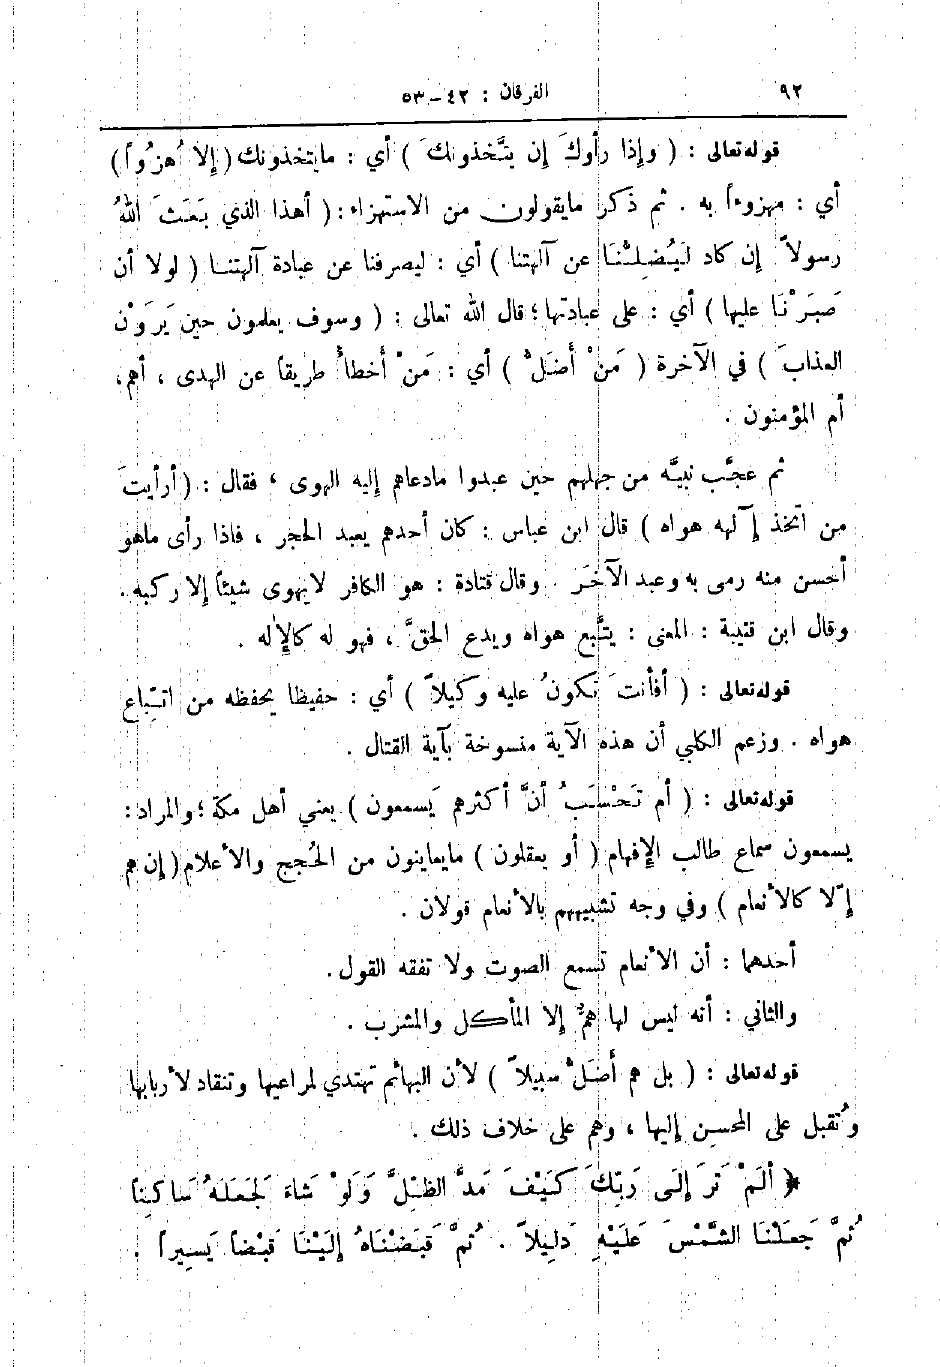 ٩٢
الفرقان : ٤٢-٥٣
قوله تعالى : ( وإذا رأوكَ إن يتَّخذونكَ ) أي : مايتخذونك ( إلا هُزُواً )
أي : مهزوءاً به . ثم ذكر مايقولون من الاستهزاء : ( أهذا الذي بَعَثَ اللهُ
رسولاً إن كاد لَيُضِلنَّا عن آلهتنا ) أي : ليصرفنا عن عبادة آلهتنا ( لولا أن
صَبَرْنَا عليها ) أي : على عبادتها ؛ قال الله تعالى : ( وسوف يعلمون حين يَرَوْن
العذابَ ) في الآخرة ( مَنْ أَضَلُّ ) أي : مَنْ أَخطأُ طريقاً عن الهدى ، أهم،
أم المؤمنون .
ثم عجَّب نبيَّه من جهلهم حين عبدوا مادعاهم إليه الهوى ، فقال : ( أرأيتَ
من اتخذ إِلهه هواه ) قال ابن عباس : كان أحدهم يعبد الحجر ، فاذا رأى ماهو
أحسن منه رمى به وعبد الآخَر . وقال قتادة : هو الكافر لايهوى شيئاً إلا ركبه .
وقال ابن قتيبة : المعنى : يتَّبع هواه ويدع الحقَّ ، فهو له كالإِله .
قوله تعالى : ( أفأنتَ تكونُ عليه وكيلاً ) أي : حفيظا يحفظه من اتبِّاع
هواه . وزعم الكلبي أن هذه الآية منسوخة بآية القتال .
قوله تعالى : ( أم تَحْسَبُ أنَّ أكثرهم يَسمعون ) يعني أهل مكة ؛ والمراد :
يسمعون سماع طالب الإفهام ( أو يعقلون ) مايعاينون من الحُجج والأعلام ( إن هم
إلّا كالأنعام ) وفي وجه تشبيههم بالأنعام قولان .
أحدهما : أن الأنعام تسمع الصوت ولا تفقه القول .
والثاني : أنه ليس لها همٌّ إلا المأكل والمشرب .
قوله تعالى : ( بل هم أضَلُّ سبيلاً ) لأن البهائم تهتدي لمراعيها وتنقاد لأربابها
وتُقبل على المحسن إليها ، وهم على خلاف ذلك .
﴿ أَلَمْ تَرَ إِلَى رَبِّكَ كَيْفَ مَدَّ الظِّلَّ وَلَوْ شَاءَ لَجَعَلَهُ سَاكِنًا
ثُمَّ جَعَلْنَا الشَّمْسَ عَلَيْهِ دَلِيلاً . ثُمَّ قَبَضْنَاهُ إِلَيْنَا قَبْضاً يَسِيراً .